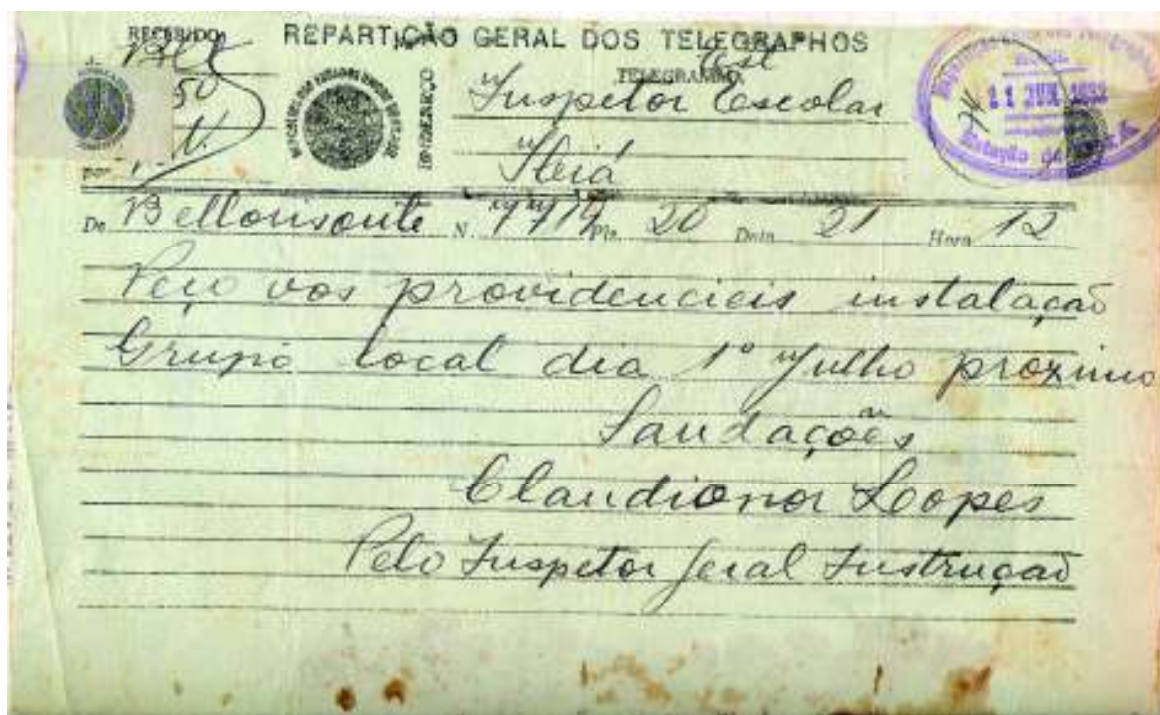 RECEBIDO
REPARTIÇÃO GERAL DOS TELEGRAPHOS
Est
TELEGRAMMA
50
Inspetor Escolar
Ibiá
por
De Bellorisonte N. Pls. 20 Data 21 Hora 12
Peço vos providencieis instalação
Grupo local dia 1º Julho proximo
Saudações
Claudionor Lopes
Pelo Inspetor Geral Instrução